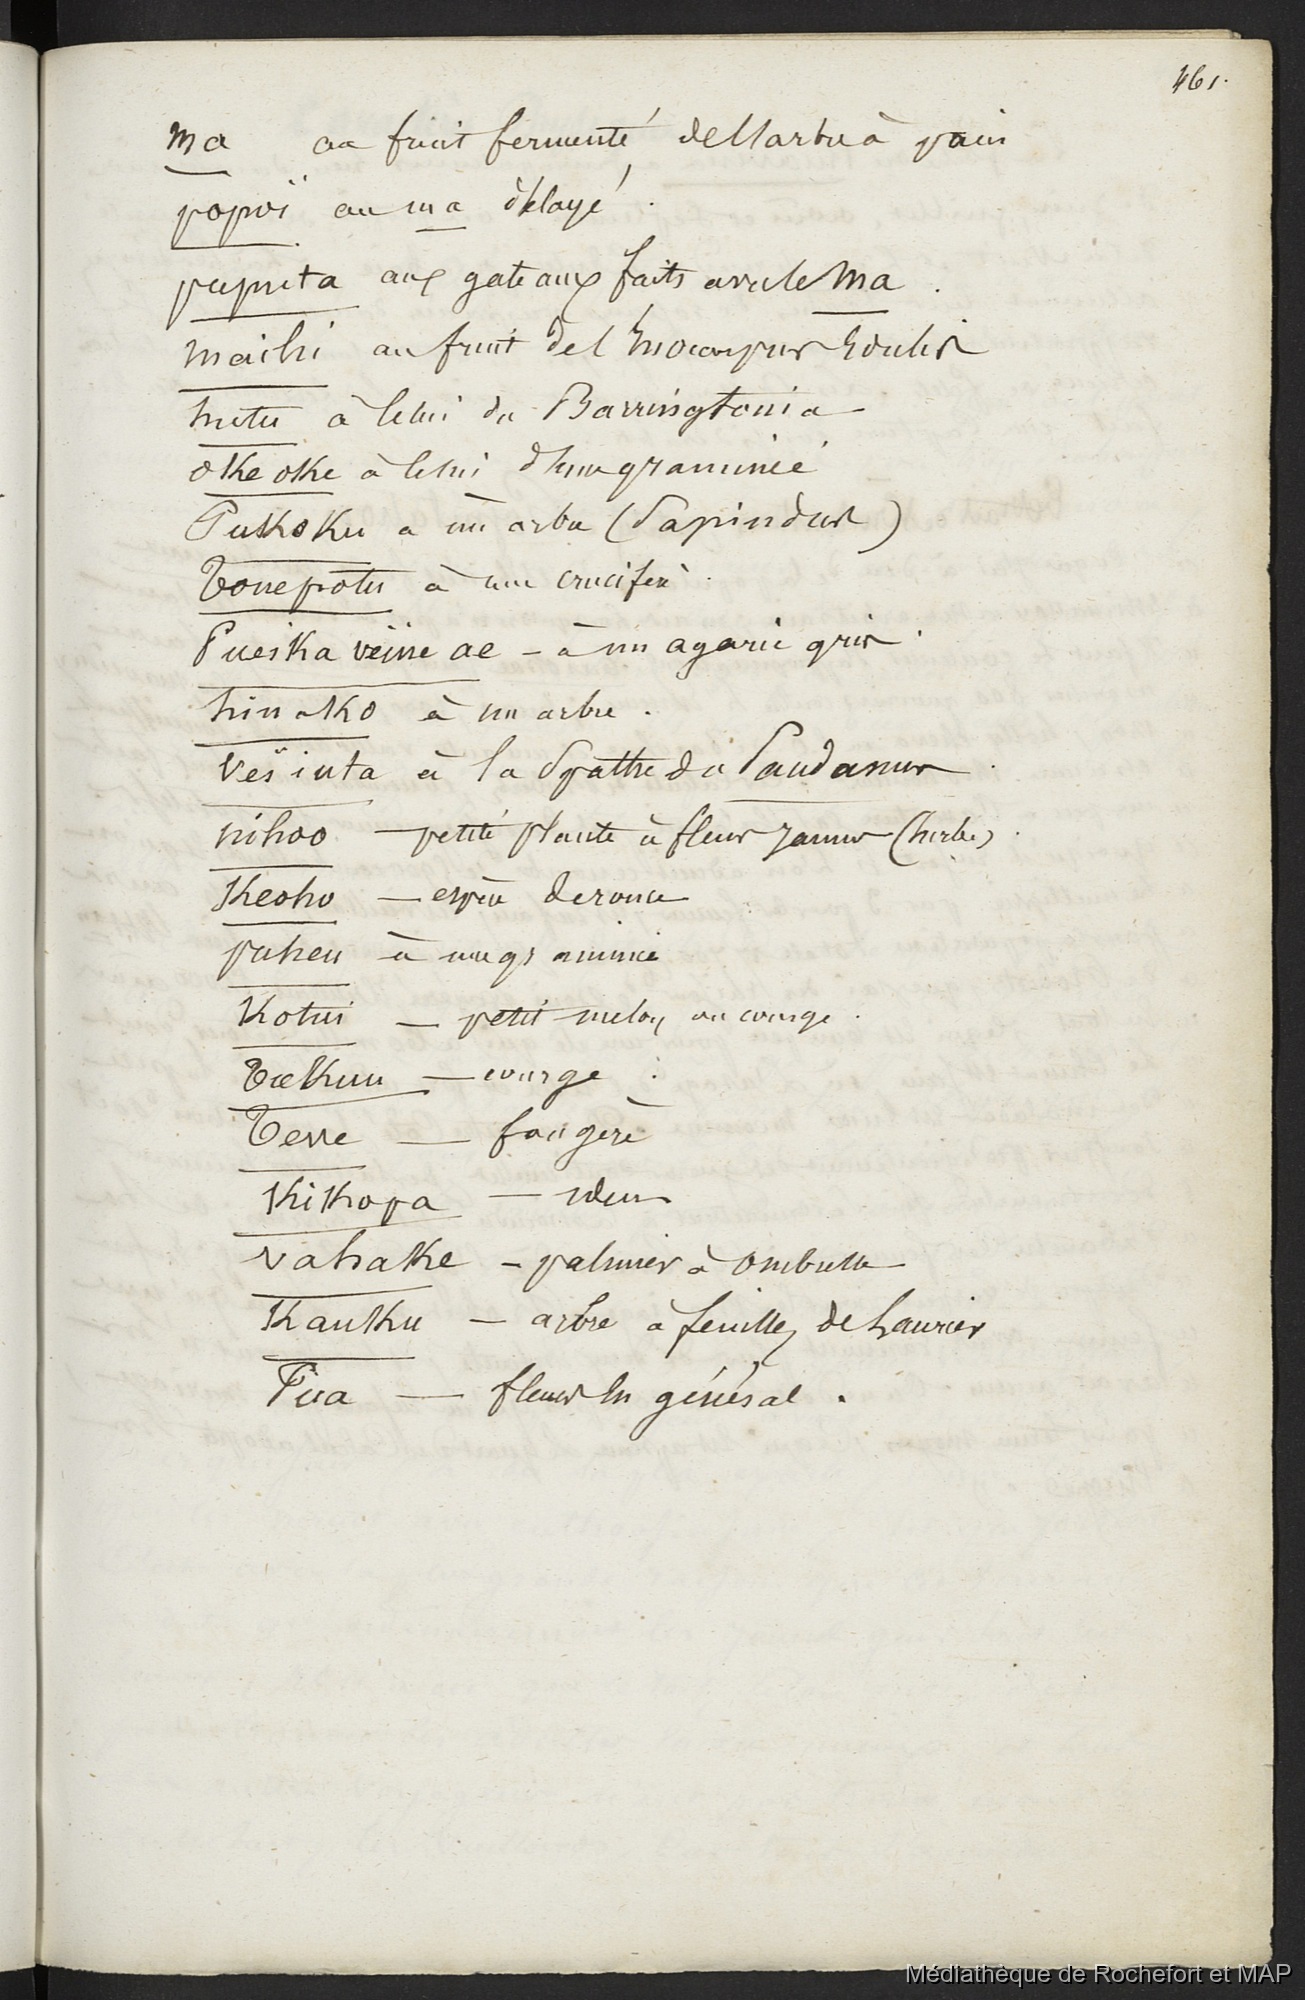 461.
Ma au fruit fermenté de l'arbre à pain
popoï au ma délayé.
papeita aux gateaux faits avec le Ma.
maihi au fruit de l'Inocarpus Edulis
hutu à celui du Barringtonia
oke oke à celui d'une graminée
Pukoku à un arbre (Sapindus)
Tonepotu à une crucifère.
Pueika veïne ae - à un agaric gris.
hinako à un arbre.
veïinta à la Spathe du Pandanus.
nihoo — petite plante à fleurs jaunes (herbe).
Keoho — espèce de ronce
puheu à une graminée
Kotui — petit melon ou courge.
Tækuu — courge.
Teve — fougère
Kikopa — idem
vahake - palmier à ombrelle
Kauku — arbre à feuilles de Laurier
Pua — fleurs en général.
Médiathèque de Rochefort et MAP